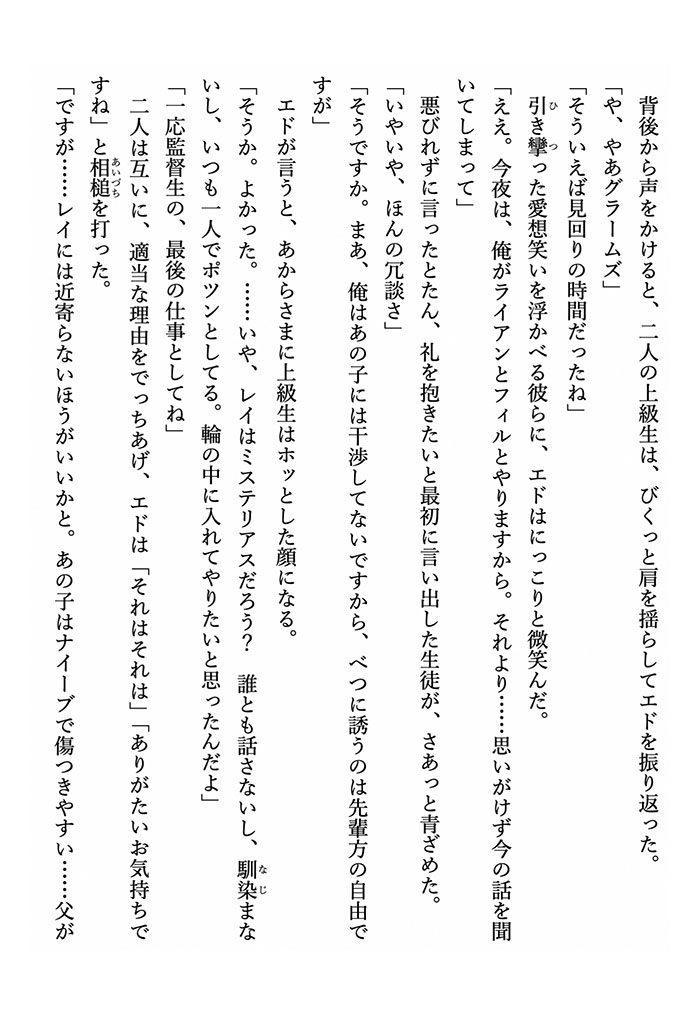 背後から声をかけると、二人の上級生は、びくっと肩を揺らしてエドを振り返った。
「や、やあグラームズ」
「そういえば見回りの時間だったね」
　引き攣った愛想笑いを浮かべる彼らに、エドはにっこりと微笑んだ。
「ええ。今夜は、俺がライアンとフィルとやりますから。それより……思いがけず今の話を聞
いてしまって」
　悪びれずに言ったとたん、礼を抱きたいと最初に言い出した生徒が、さあっと青ざめた。
「いやいや、ほんの冗談さ」
「そうですか。まあ、俺はあの子には干渉してないですから、べつに誘うのは先輩方の自由で
すが」
　エドが言うと、あからさまに上級生はホッとした顔になる。
「そうか。よかった。……いや、レイはミステリアスだろう？　誰とも話さないし、馴染まな
いし、いつも一人でポツンとしてる。輪の中に入れてやりたいと思ったんだよ」
「一応監督生の、最後の仕事としてね」
　二人は互いに、適当な理由をでっちあげ、エドは「それはそれは」「ありがたいお気持ちで
すね」と相槌を打った。
「ですが……レイには近寄らないほうがいいかと。あの子はナイーブで傷つきやすい……父が